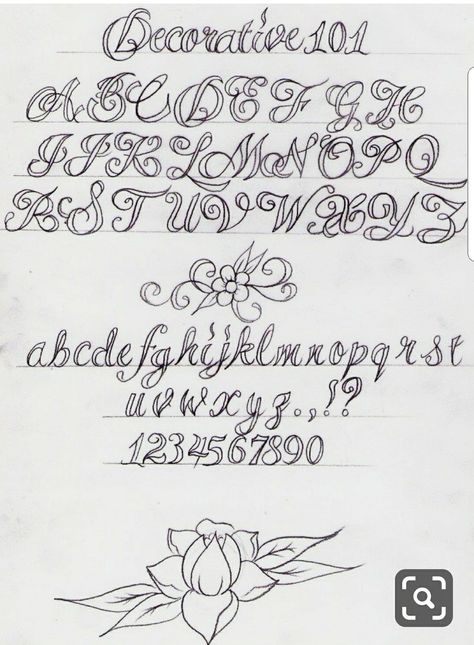 Decorative 101
ABCDEFGH
IJKLMNOPQ
RSTUVWXYZ
abcdefghijklmnopqrst
uvwxyz.,!?
1234567890